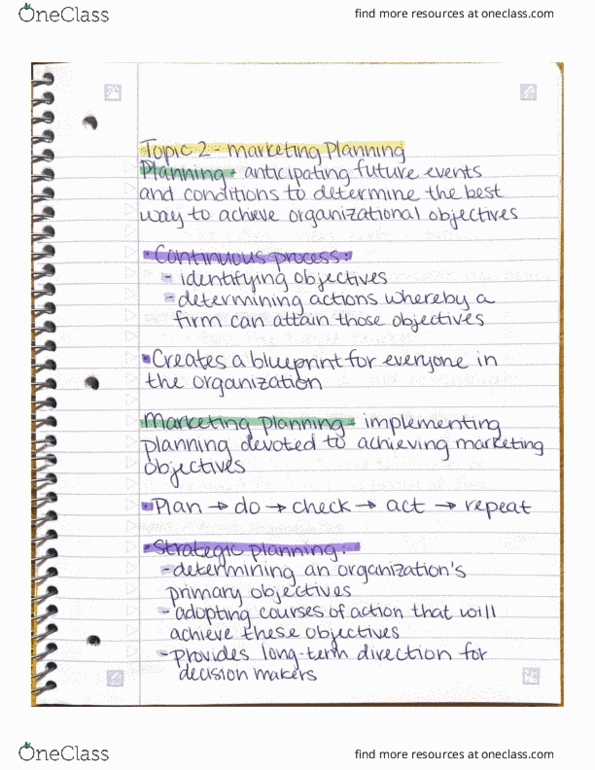 OneClass
find more resources at oneclass.com
Topic 2 - marketing Planning
Planning - anticipating future events
and conditions to determine the best
way to achieve organizational objectives
• Continuous process:
- identifying objectives
- determining actions whereby a
firm can attain those objectives
• Creates a blueprint for everyone in
the organization
Marketing planning - implementing
planning devoted to achieving marketing
objectives
• Plan → do → check → act → repeat
• Strategic planning:
- determining an organization's
primary objectives
- adopting courses of action that will
achieve these objectives
- provides long-term direction for
decision makers
OneClass
find more resources at oneclass.com